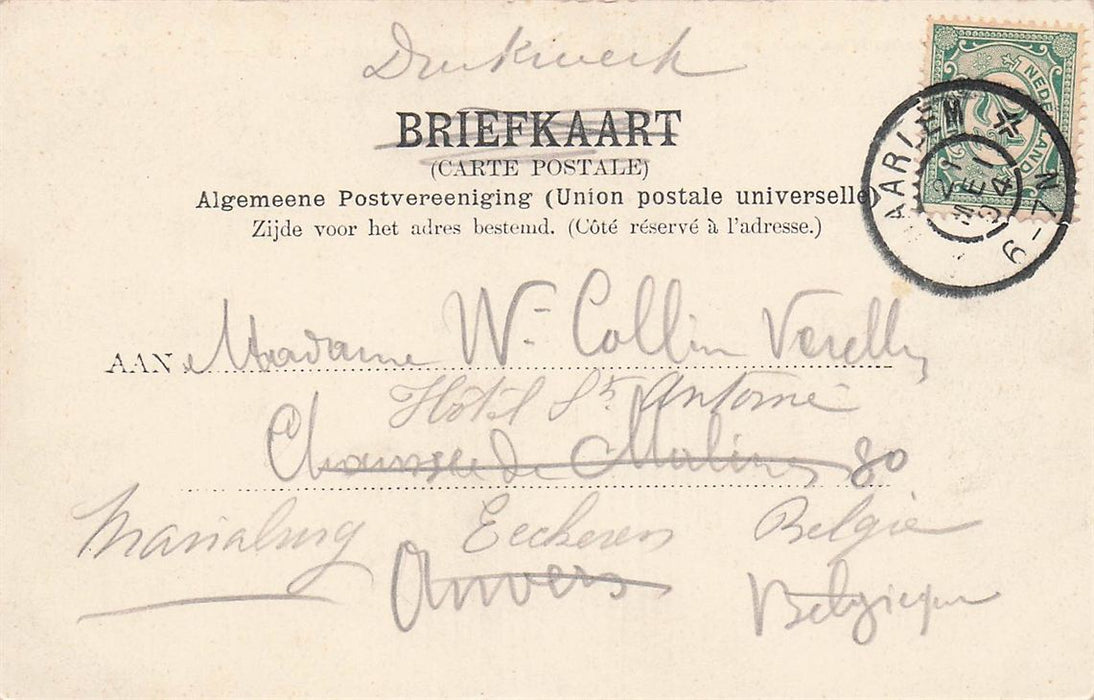 Drukwerk
BRIEFKAART
(CARTE POSTALE)
Algemeene Postvereeniging (Union postale universelle)
Zijde voor het adres bestemd. (Côté réservé à l'adresse.)
NEDERLAND
HAARLEM
21 MEI 04
6-7N
AAN Madame W- Collin
Hôtel St. Antoine
Chaussée de Malines 80
Mariaburg Eeckeren Belgie
Anvers
Belgique